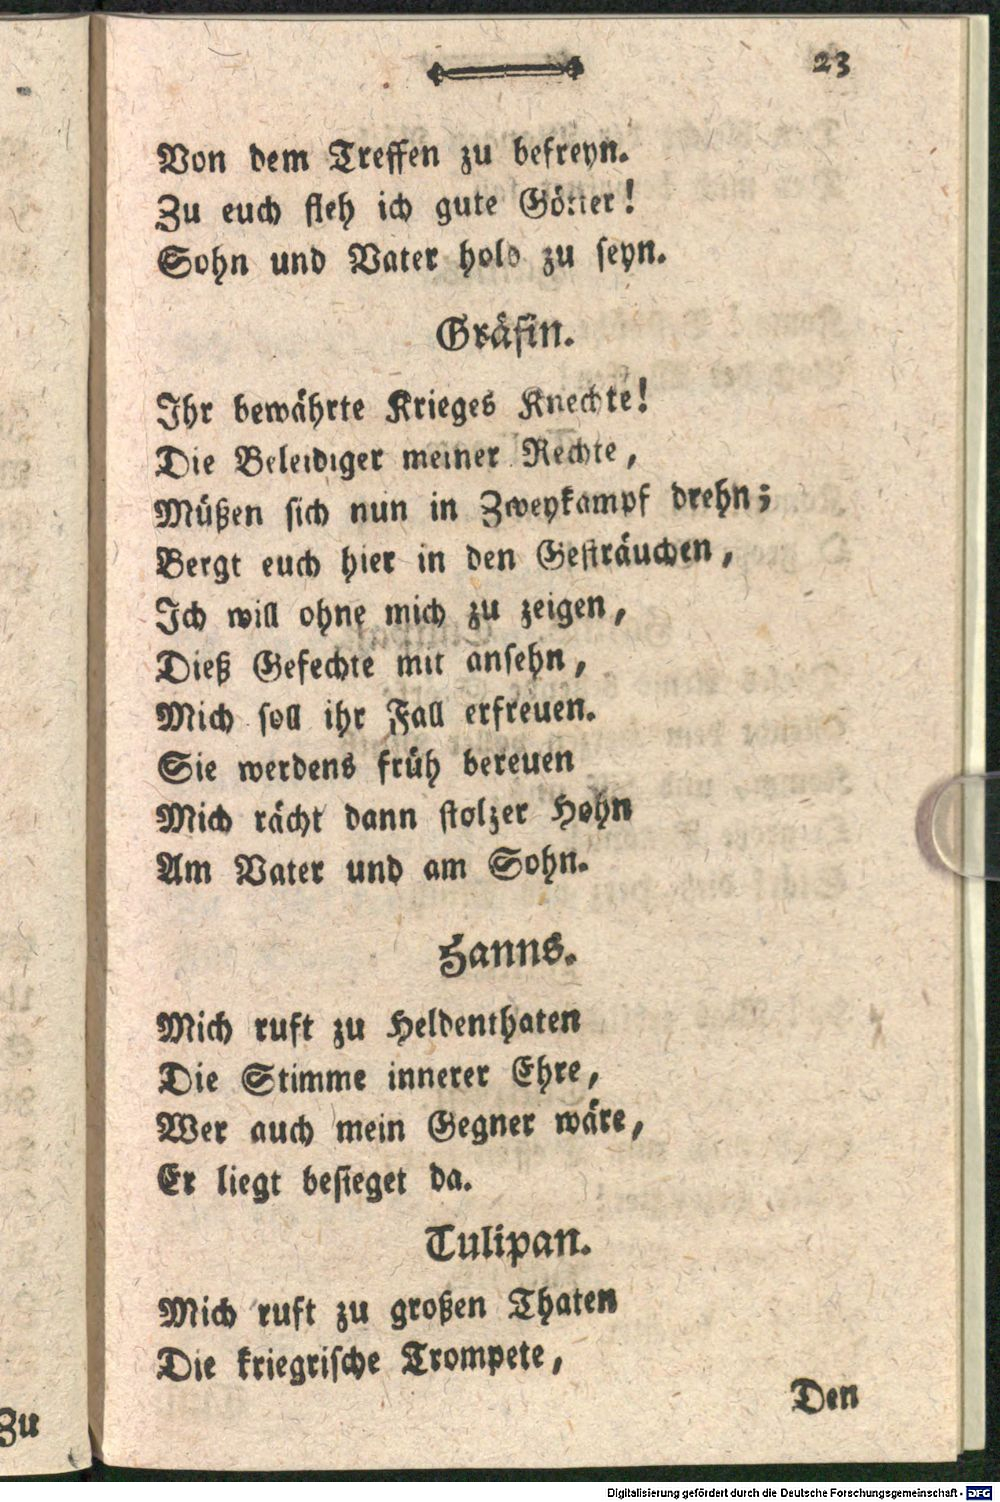 23
Von dem Treffen zu befreyn.
Zu euch fleh ich gute Götter!
Sohn und Vater hold zu seyn.
Gräfin.
Ihr bewährte Krieges Knechte!
Die Beleidiger meiner Rechte,
Müßen sich nun in Zweykampf drehn;
Bergt euch hier in den Gesträuchen,
Ich will ohne mich zu zeigen,
Dieß Gefechte mit ansehn,
Mich soll ihr Fall erfreuen.
Sie werdens früh bereuen
Mich rächt dann stolzer Hohn
Am Vater und am Sohn.
Hanns.
Mich ruft zu Heldenthaten
Die Stimme innerer Ehre,
Wer auch mein Gegner wäre,
Er liegt besieget da.
Tulipan.
Mich ruft zu großen Thaten
Die kriegrische Trompete,
Den
Zu
Digitalisierung gefördert durch die Deutsche Forschungsgemeinschaft - DFG